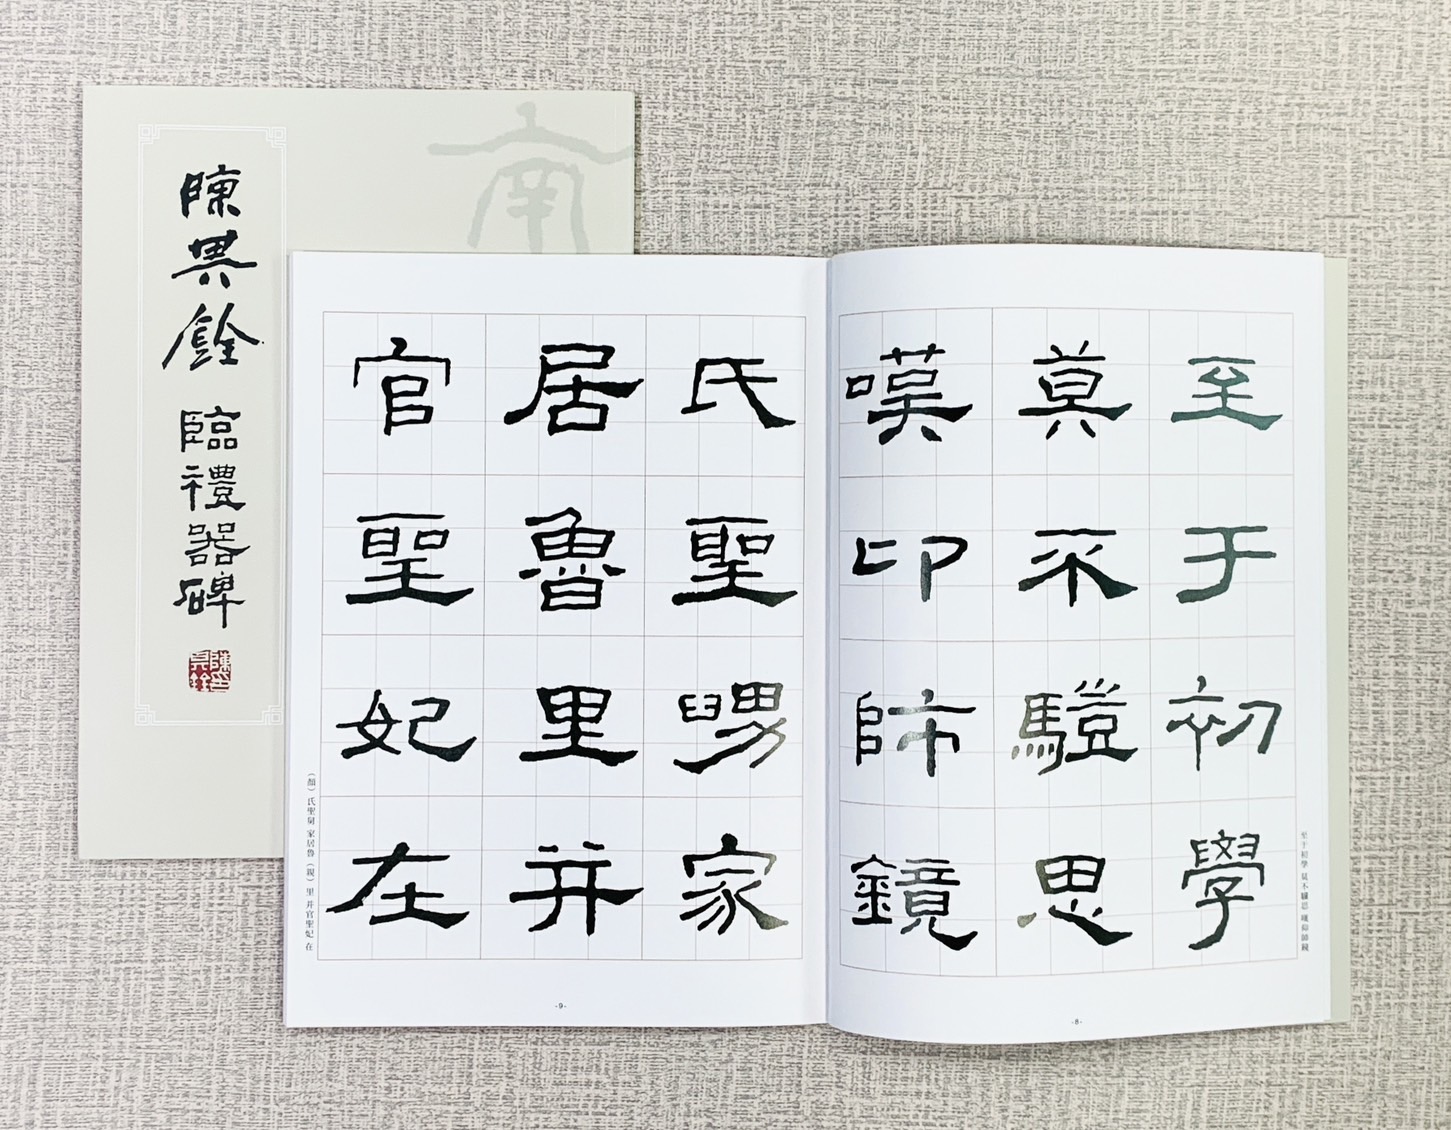 南
陳其銓 臨禮器碑
至于初學
莫不驥思
嘆卬師鏡
氏聖舅家
居魯里并
官聖妃在
至于初學 莫不驥思 嘆仰師鏡
（顏）氏聖舅 家居魯（親）里 并官聖妃 在
-8-
-9-